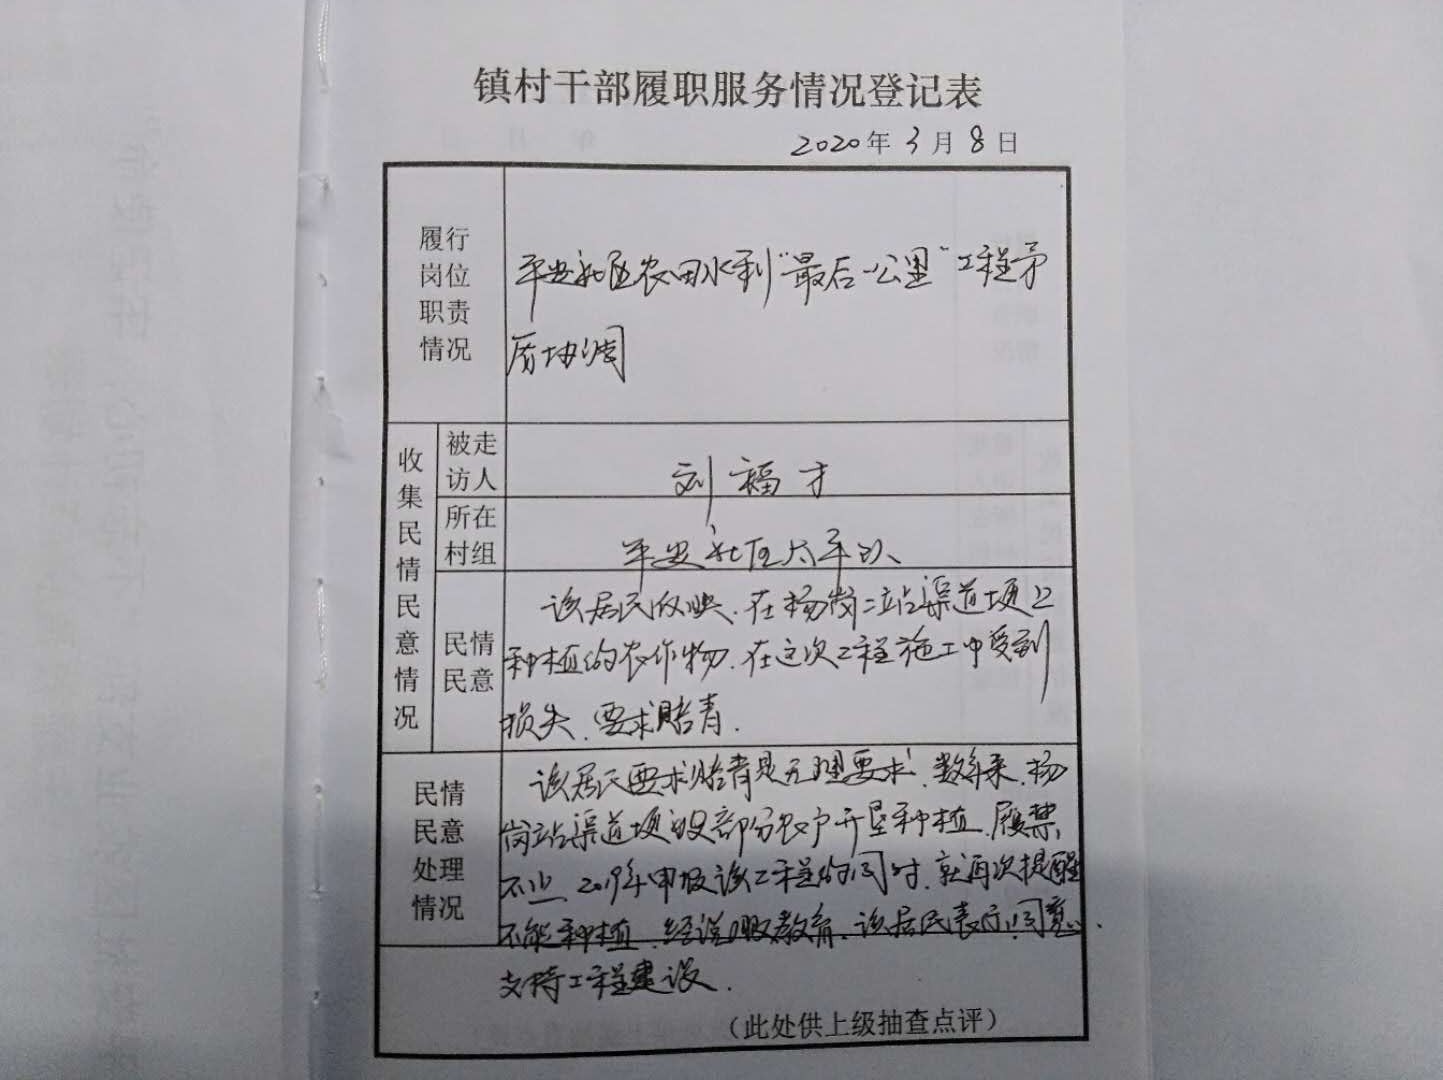 镇村干部履职服务情况登记表
2020年3月8日
履行
岗位
职责
情况
平安社区农田水利“最后一公里”工程矛
盾协调
收集民情民意情况
被走
访人
刘福才
所在
村组
平安社区太平队
民情
民意
该居民反映、在杨岗二站渠道埂上
种植的农作物、在这次工程施工中受到
损失、要求赔青.
民情
民意
处理
情况
该居民要求赔青是无理要求、数年来、杨
岗站渠道埂被部分农户开垦种植、屡禁
不止、2019年申报该工程的同时、就再次提醒
不能种植、经说服教育、该居民表示同意、
支持工程建设.
（此处供上级抽查点评）